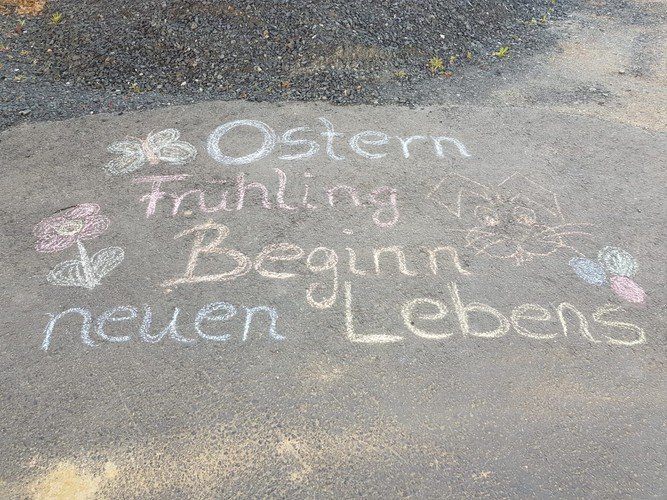 Ostern
Frühling
Beginn
neuen Lebens